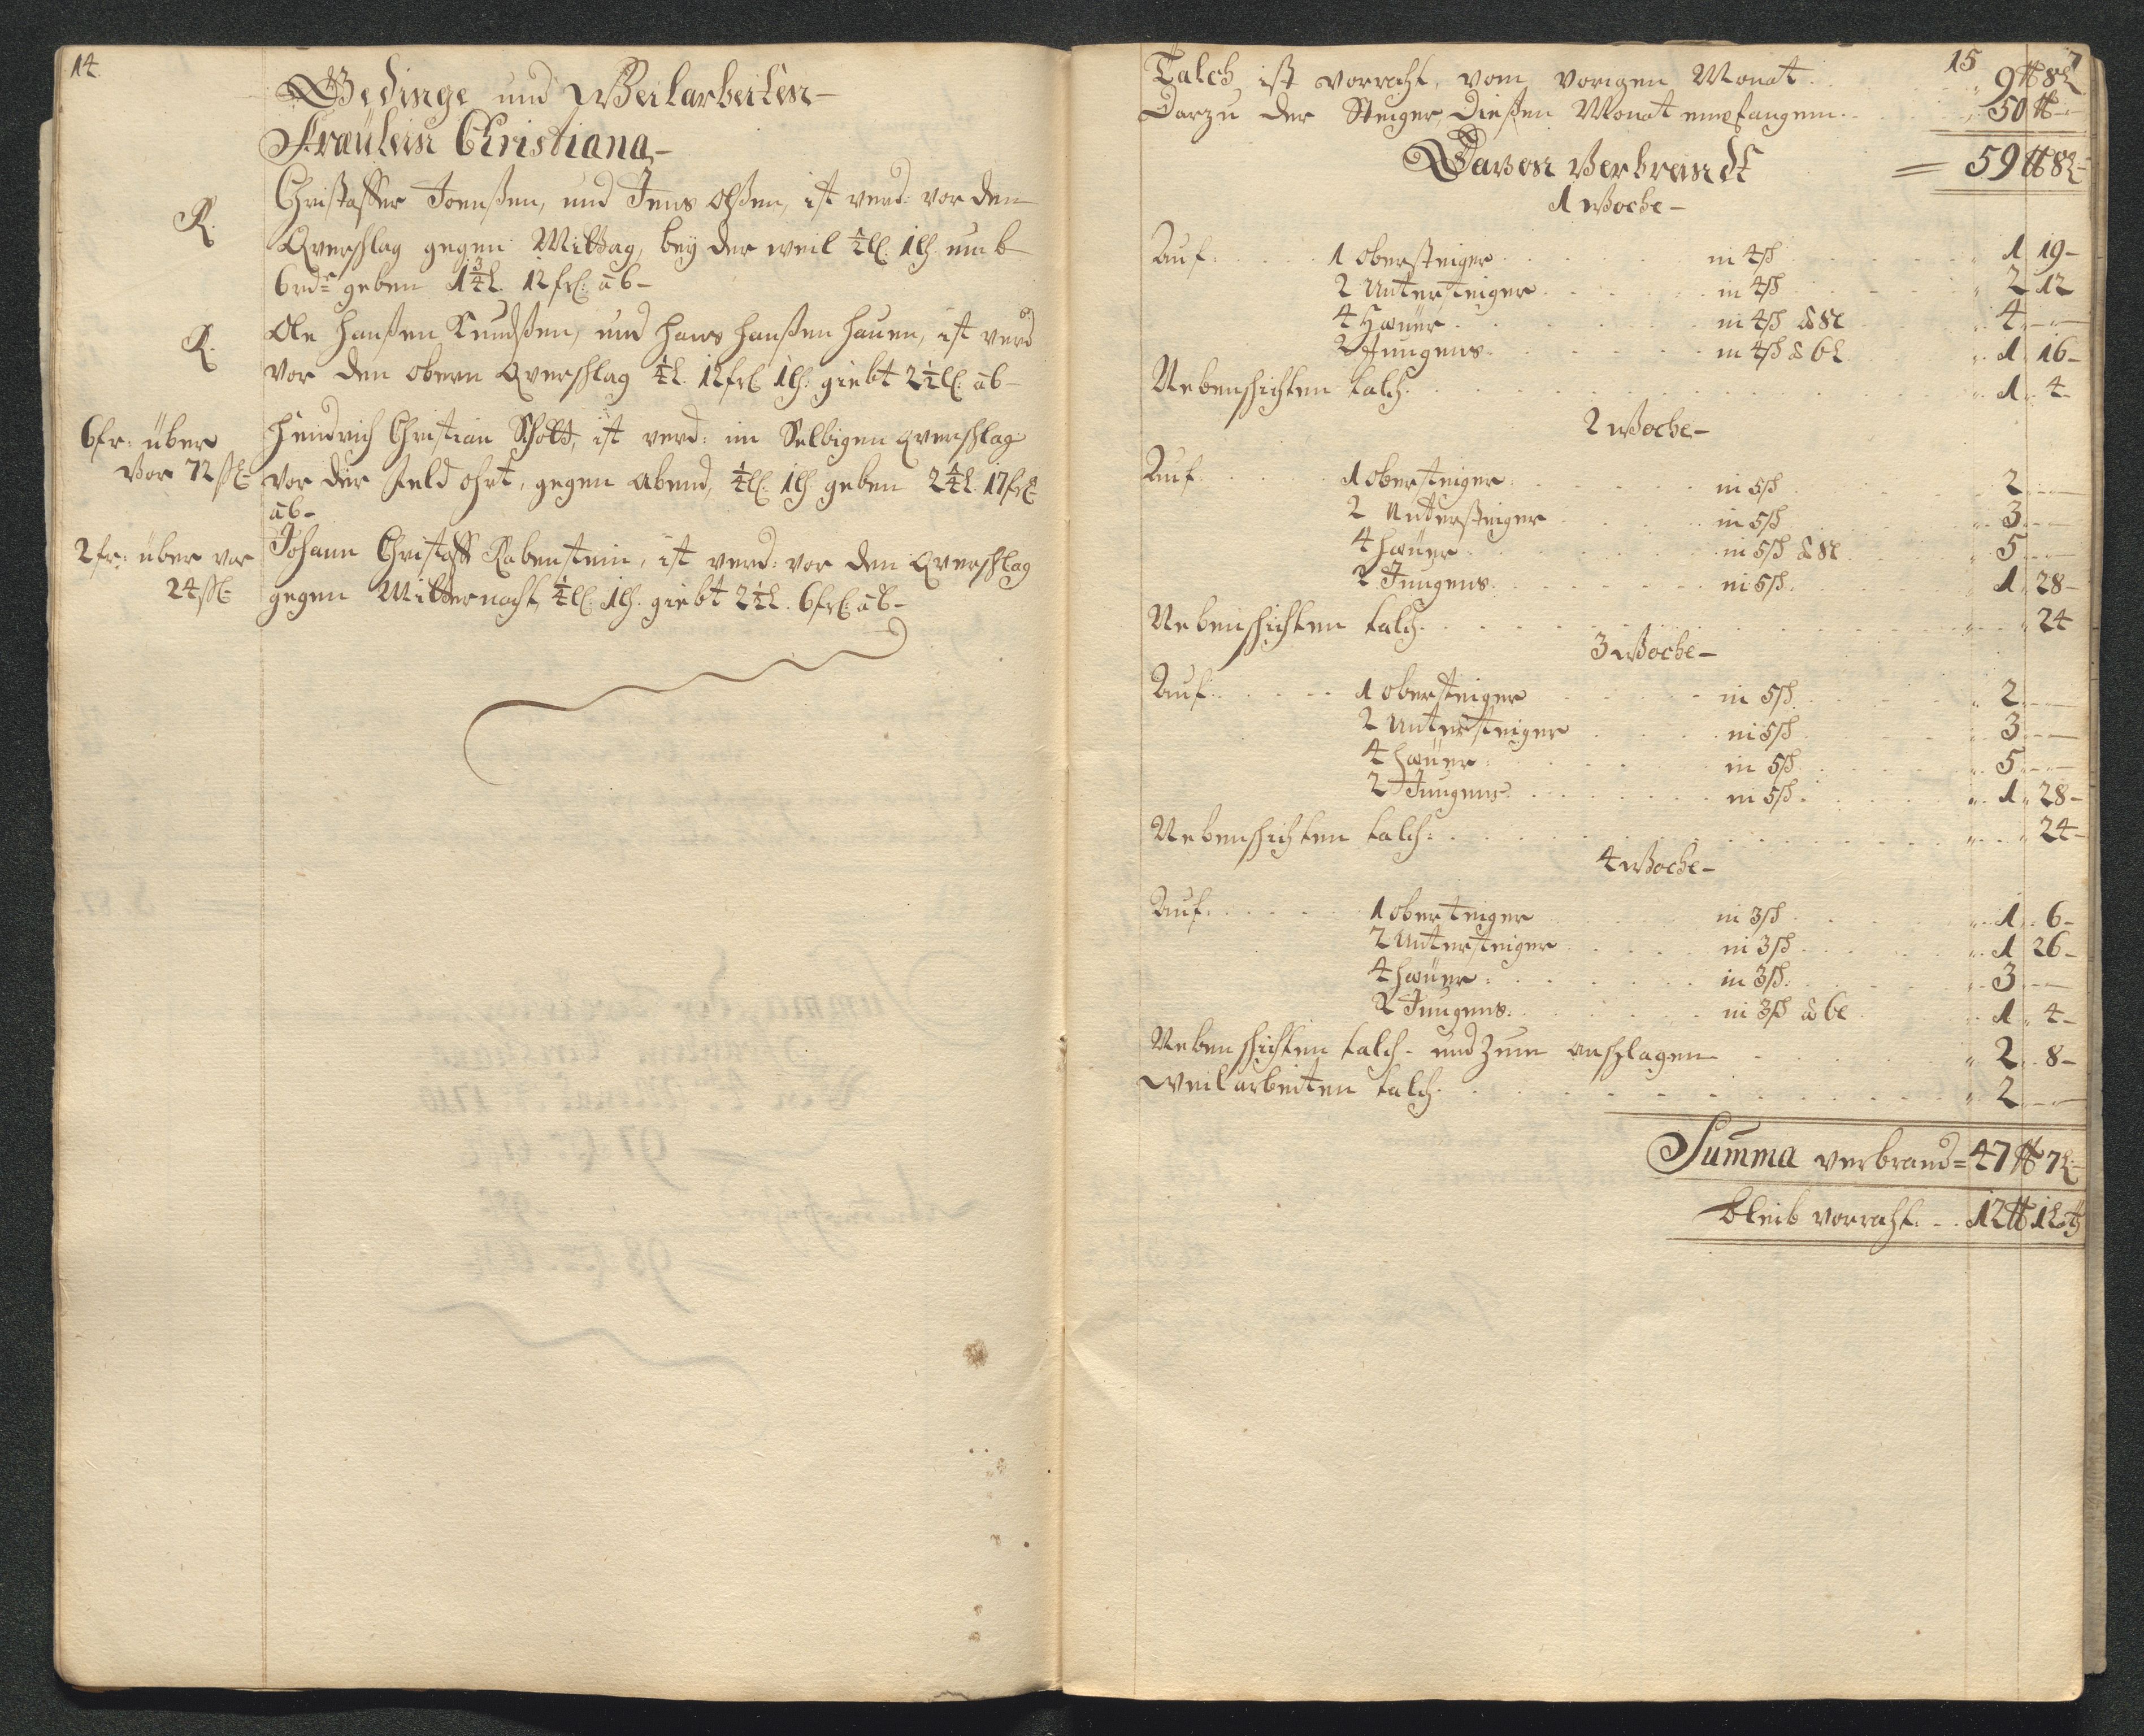 14.
Gedinge und Weilarbeiten-
Fraülein Christiana-
R. Christaffer Joenßen, und Jens Olßen, ist verd: vor den
Qverschlag gegen Mittag, bey der weil ½ll. 1lh. umb
6rd: geben 1¾L. 12frl: ab-
R. Ole Hanßen Knudßen, und Hans Hanßen Hauen, ist verd
vor den obern Qverschlag ½L. 12frl 1lh: giebt 2½ll: ab-
6fr: über Hendrich Christian Scholtt, ist verd: im Selbigen Qverschlag
vor 72ßl- vor der Feld ohrt, gegen abend, ½ll. 1lh geben 2½L. 17frl-
ab-
2fr: über vor Johann Christoff Rabenstein, ist verd: vor den Qverschlag
24ßl- gegen Mitternacht, ½ll. 1lh. giebt 2½L. 6frl: ab-
15
Talch ist vorraht, vom vorigen Monat. 9 ℔ 8L
Darzu der Steiger, dießen Monat empfangenn. 50 ℔ -
Davon Verbrandt = 59 ℔ 8L-
1 Woche-
Auf. 1 Obersteiger in 4ß 1 19-
2 Untersteiger in 4ß 2 12
4 Hauer in 4ß à 8L 4 -
2 Jungens. in 4ß à 6L 1 16-
Nebenschichten talch. 1 4-
2 Woche-
Auf. 1 Obersteiger in 5ß 2 -
2 Untersteiger in 5ß 3 -
4 Hauer in 5ß à 8L 5 -
2 Jungens. in 5ß. 1 28-
Nebenschichten talch. 24
3 Woche-
Auf. 1 Obersteiger in 5ß. 2 -
2 Untersteiger in 5ß 3 -
4 Hauer in 5ß 5 -
2 Jungens in 5ß. 1 28-
Nebenschichten talch: 24-
4 Woche-
Auf. 1 Oberteiger in 3ß 1 6-
2 Untersteiger in 3ß 1 26-
4 Hauer: in 3ß. 3 -
2 Jungens. in 3ß à 6L 1 4-
Nebenschichten talch- und zum anschlagen 2 8-
Weilarbeiten talch. 2 -
Summa verbrand= 47 ℔ 7L-
bleib vorraht. 12 ℔ 1Lth